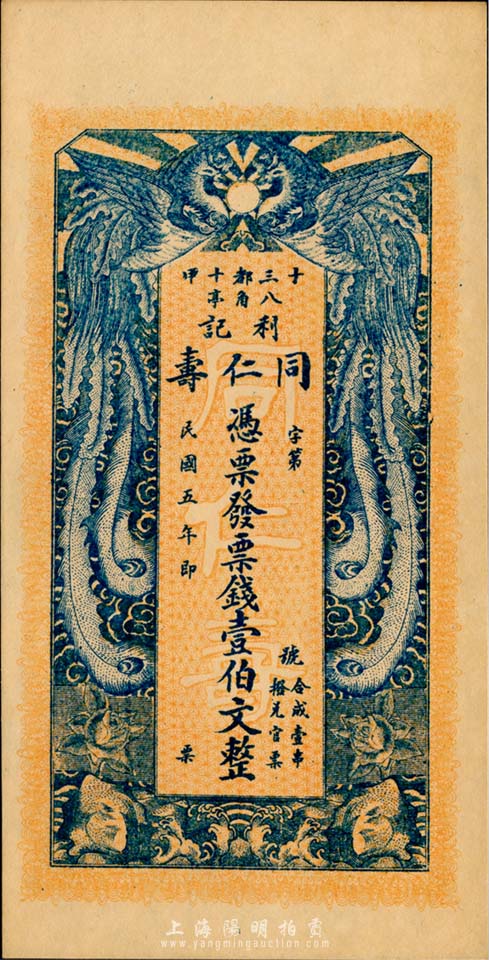 十三都十甲
八角亭
利記
同仁壽
字第 號
合成壹串
撥兑官票
憑票發票錢壹伯文整
民國五年即 票
同仁壽
上海陽明拍賣
www.yangmingauction.com